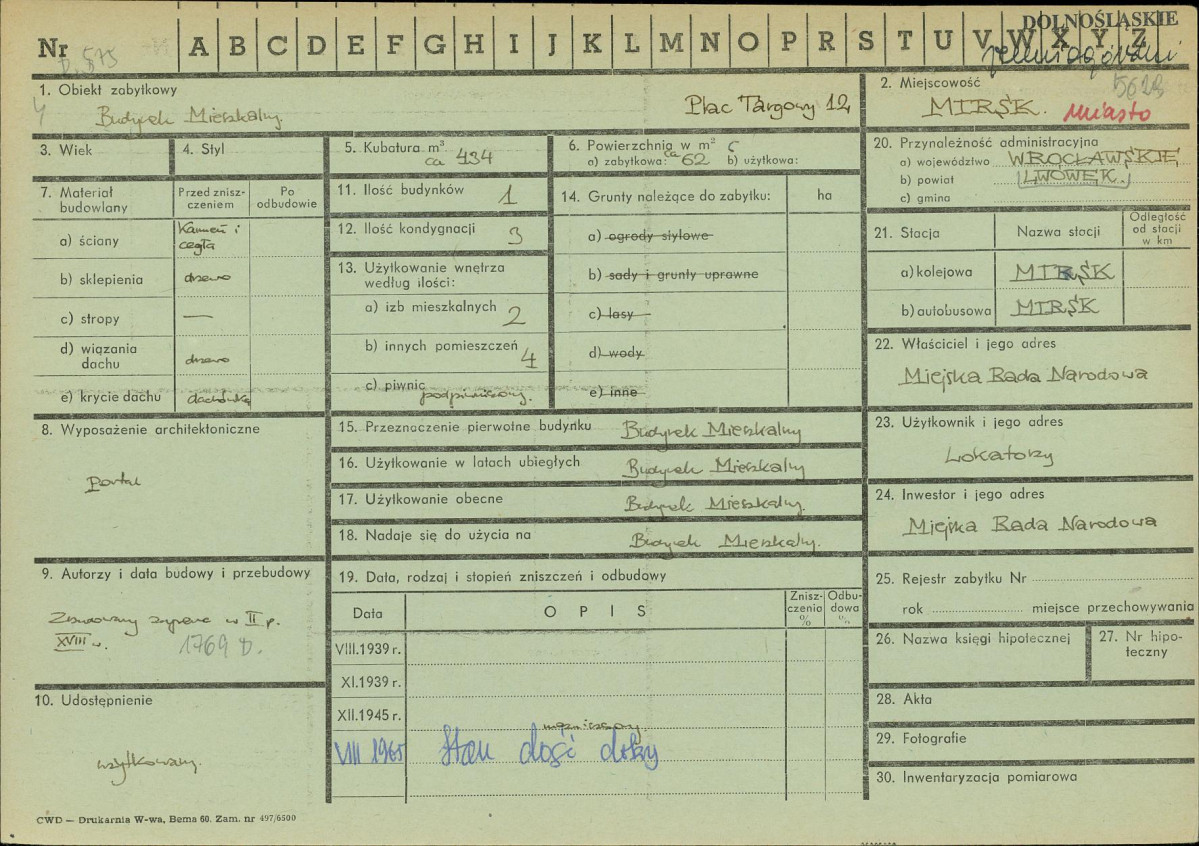 DOLNOŚLĄSKIE
Nr A B C D E F G H I J K L M N O P R S T U V W X Y Z
1. Obiekt zabytkowy
Budynek Mieszkalny. Plac Targowy 12
2. Miejscowość
MIRSK. Miasto
3. Wiek
4. Styl
5. Kubatura m³
ca 434
6. Powierzchnia w m²
a) zabytkowa: ca 62 b) użytkowa:
20. Przynależność administracyjna
a) województwo WROCŁAWSKIE
b) powiat LWÓWEK.
c) gmina
7. Materiał budowlany
Przed zniszczeniem
Po odbudowie
a) ściany Kamień i cegła
b) sklepienia drewno
c) stropy —
d) wiązania dachu drewno
e) krycie dachu dachówka
11. Ilość budynków 1
12. Ilość kondygnacji 3
13. Użytkowanie wnętrza według ilości:
a) izb mieszkalnych 2
b) innych pomieszczeń 4
c) piwnic podpiwniczony.
14. Grunty należące do zabytku: ha
a) ogrody stylowe
b) sady i grunty uprawne
c) lasy
d) wody
e) inne
21. Stacja Nazwa stacji Odległość od stacji w km
a) kolejowa MIRSK
b) autobusowa MIRSK
22. Właściciel i jego adres
Miejska Rada Narodowa
8. Wyposażenie architektoniczne
portal
15. Przeznaczenie pierwotne budynku Budynek Mieszkalny
16. Użytkowanie w latach ubiegłych Budynek Mieszkalny
17. Użytkowanie obecne Budynek Mieszkalny.
18. Nadaje się do użycia na Budynek Mieszkalny.
23. Użytkownik i jego adres
Lokatorzy
24. Inwestor i jego adres
Miejska Rada Narodowa
9. Autorzy i data budowy i przebudowy
w II p.
XVIII w. 1769 r.
19. Data, rodzaj i stopień zniszczeń i odbudowy
Data OPIS Zniszczenia % Odbudowa %
VIII.1939 r.
XI.1939 r.
XII.1945 r.
VIII 1965 Stan dość dobry
25. Rejestr zabytku Nr
rok miejsce przechowywania
26. Nazwa księgi hipotecznej
27. Nr hipoteczny
28. Akta
29. Fotografie
30. Inwentaryzacja pomiarowa
10. Udostępnienie
użytkowany.
CWD — Drukarnia W-wa, Bema 60. Zam. nr 497/6500